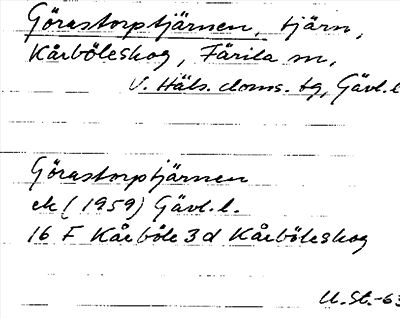 Görastorptjärnen, tjärn,
Kårböleskog, Färila sn,
V. Häls. doms. tg, Gävl. l
Görastorptjärnen
ek (1959) Gävl. l.
16 F Kårböle 3 d Kårböleskog
U. St. -63